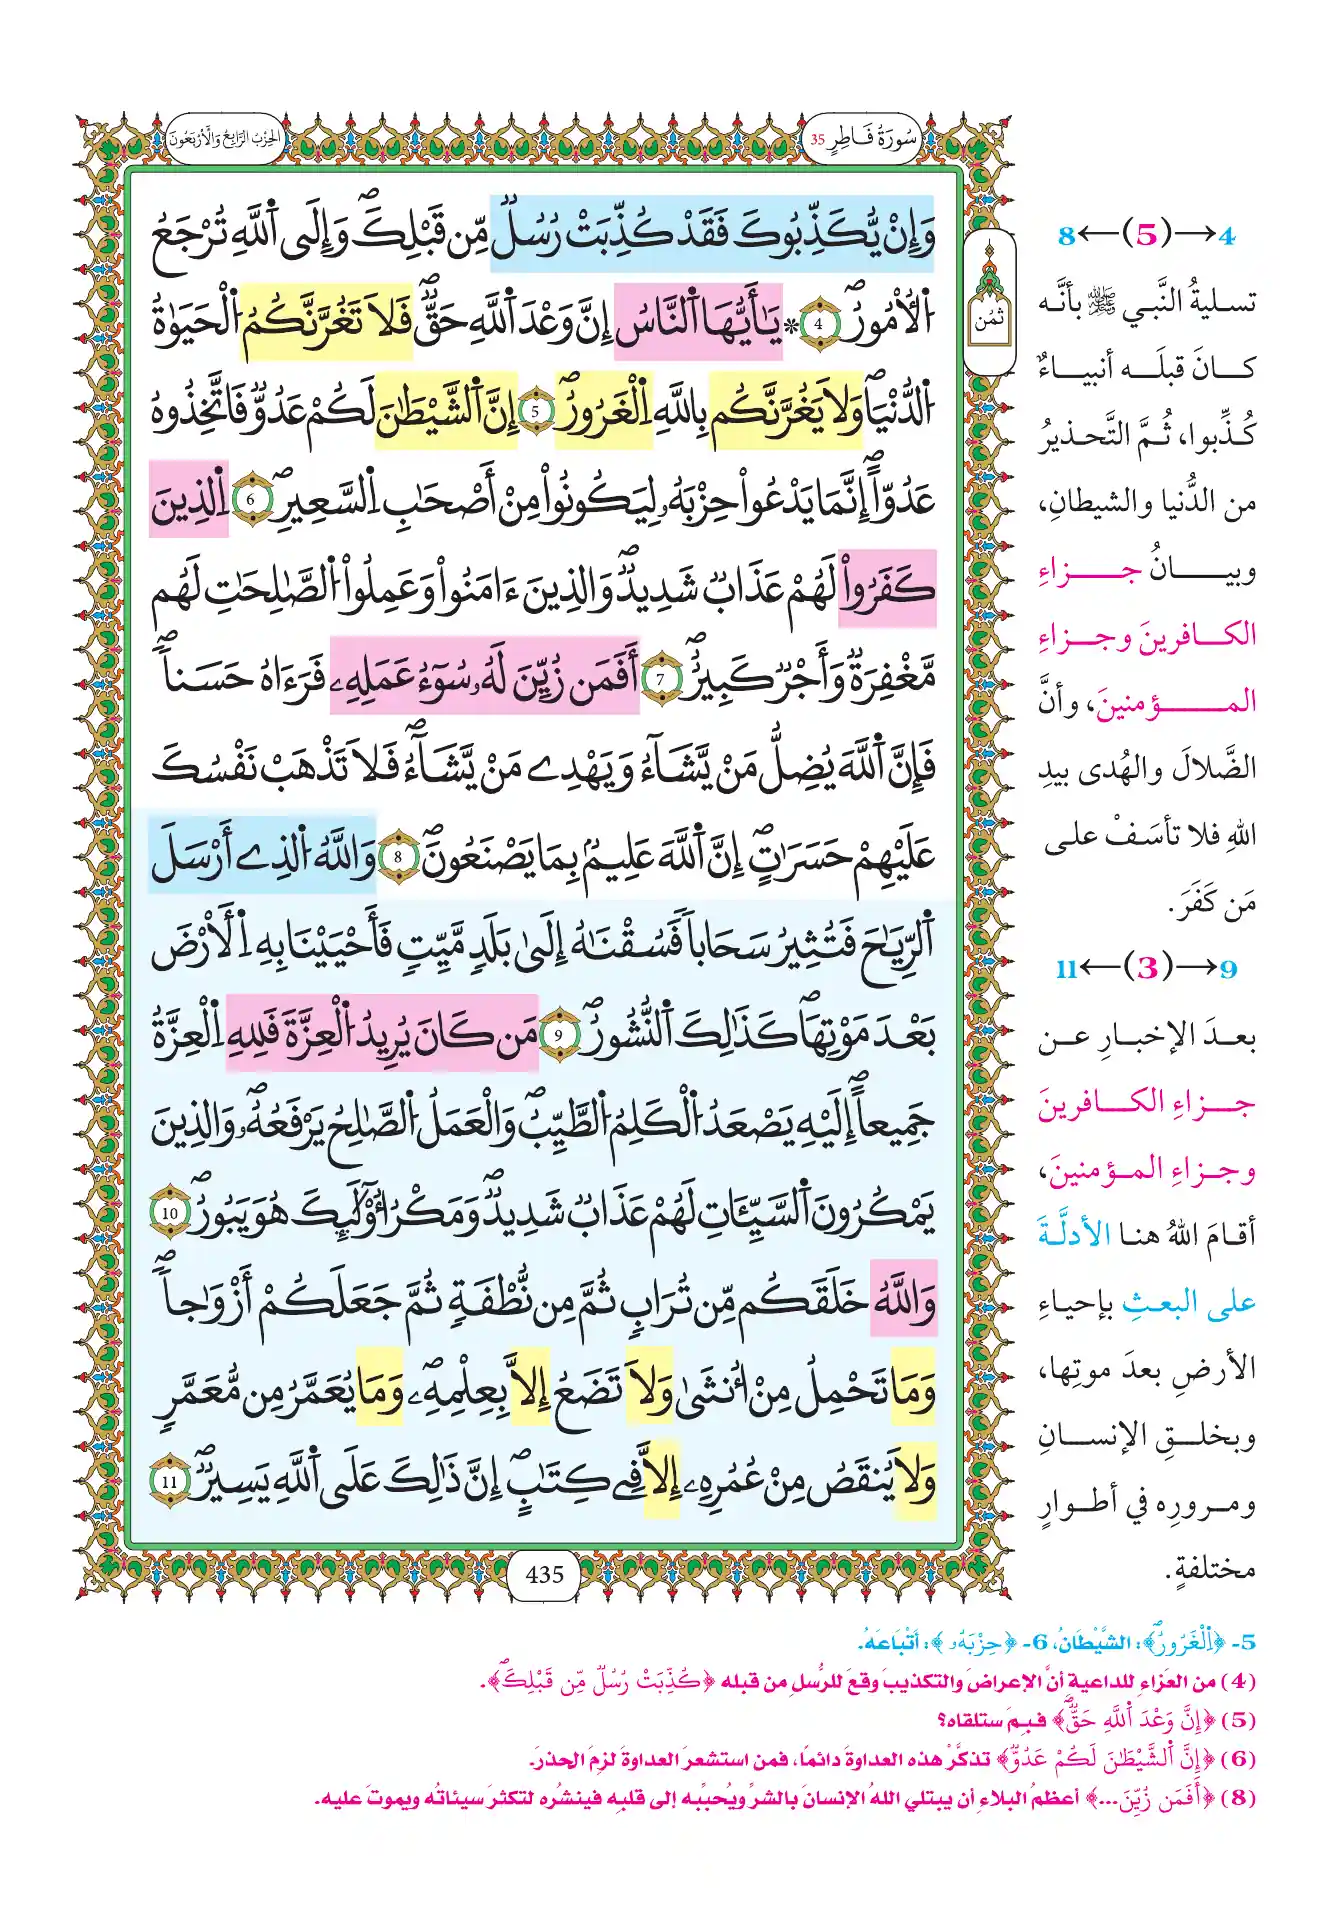 سُورَةُ فَاطِرٍ 35
الحِزْبُ الرَّابِعُ وَالْأَرْبَعُونَ
وَإِنْ يُّكَذِّبُوكَ فَقَدْ كُذِّبَتْ رُسُلٞ مِّن قَبْلِكَۖ وَإِلَى اَ۬للَّهِ تُرْجَعُ
اُ۬لْأُمُورُۖ 4 ۞ يَٰأَيُّهَا اَ۬لنَّاسُ إِنَّ وَعْدَ اَ۬للَّهِ حَقّٞۖ فَلَا تَغُرَّنَّكُمُ اُ۬لْحَيَوٰةُ
اُ۬لدُّنْيَاۖ وَلَا يَغُرَّنَّكُم بِاللَّهِ اِ۬لْغَرُورُۖ 5 إِنَّ اَ۬لشَّيْطَٰنَ لَكُمْ عَدُوّٞ فَاتَّخِذُوهُ
عَدُوّاًۖ إِنَّمَا يَدْعُواْ حِزْبَهُۥ لِيَكُونُواْ مِنْ أَصْحَٰبِ اِ۬لسَّعِيرِۖ 6 اِ۬لذِينَ
كَفَرُواْ لَهُمْ عَذَابٞ شَدِيدٞۖ وَالذِينَ ءَامَنُواْ وَعَمِلُواْ اُ۬لصَّٰلِحَٰتِ لَهُم
مَّغْفِرَةٞ وَأَجْرٞ كَبِيرٌۖ 7 أَفَمَن زُيِّنَ لَهُۥ سُوٓءُ عَمَلِهِۦ فَرَءَاهُ حَسَناٗۖ
فَإِنَّ اَ۬للَّهَ يُضِلُّ مَنْ يَّشَآءُ وَيَهْدِے مَنْ يَّشَآءُۖ فَلَا تَذْهَبْ نَفْسُكَ
عَلَيْهِمْ حَسَرَٰتٍۖ إِنَّ اَ۬للَّهَ عَلِيمُۢ بِمَا يَصْنَعُونَۖ 8 وَاللَّهُ اُ۬لذِے أَرْسَلَ
اَ۬لرِّيَٰحَ فَتُثِيرُ سَحَاباٗ فَسُقْنَٰهُ إِلَىٰ بَلَدٖ مَّيِّتٖ فَأَحْيَيْنَا بِهِ اِ۬لْأَرْضَ
بَعْدَ مَوْتِهَاۖ كَذَٰلِكَ اَ۬لنُّشُورُۖ 9 مَن كَانَ يُرِيدُ اُ۬لْعِزَّةَ فَلِلهِ اِ۬لْعِزَّةُ
جَمِيعاًۖ إِلَيْهِ يَصْعَدُ اُ۬لْكَلِمُ اُ۬لطَّيِّبُۖ وَالْعَمَلُ اُ۬لصَّٰلِحُ يَرْفَعُهُۥۖ وَالذِينَ
يَمْكُرُونَ اَ۬لسَّيِّـَٔاتِ لَهُمْ عَذَابٞ شَدِيدٞۖ وَمَكْرُ أُوْلَٰٓئِكَ هُوَ يَبُورُۖ 10
وَاللَّهُ خَلَقَكُم مِّن تُرَابٖ ثُمَّ مِن نُّطْفَةٖ ثُمَّ جَعَلَكُمْ أَزْوَٰجاٗۖ
وَمَا تَحْمِلُ مِنْ أُنثَىٰ وَلَا تَضَعُ إِلَّا بِعِلْمِهِۦۖ وَمَا يُعَمَّرُ مِن مُّعَمَّرٖ
وَلَا يُنقَصُ مِنْ عُمُرِهِۦ إِلَّا فِے كِتَٰبٍۖ إِنَّ ذَٰلِكَ عَلَى اَ۬للَّهِ يَسِيرٞۖ 11
ثُمُن
435
4←(5)→8
تسليةُ النَّبي ﷺ بأنَّه
كانَ قبلَه أنبياءٌ
كُذِّبوا، ثُمَّ التَّحذيرُ
من الدُّنيا والشيطانِ،
وبيانُ جزاءِ
الكافرينَ وجزاءِ
المؤمنينَ، وأنَّ
الضَّلالَ والهُدى بيدِ
اللهِ فلا تأسَفْ على
مَن كَفَرَ.
9←(3)→11
بعدَ الإخبارِ عن
جزاءِ الكافرينَ
وجزاءِ المؤمنينَ،
أقامَ اللهُ هنا الأدلَّةَ
على البعثِ بإحياءِ
الأرضِ بعدَ موتِها،
وبخلقِ الإنسانِ
ومرورِه في أطوارٍ
مختلفةٍ.
5- ﴿اِ۬لْغَرُورُۖ﴾: الشَّيْطَانُ، 6- ﴿حِزْبَهُۥ﴾: أَتْبَاعَهُ.
(4) من العَزاءِ للداعيةِ أنَّ الإعراضَ والتكذيبَ وقعَ للرُّسلِ من قبله ﴿كُذِّبَتْ رُسُلٞ مِّن قَبْلِكَۖ﴾.
(5) ﴿إِنَّ وَعْدَ اَ۬للَّهِ حَقّٞۖ﴾ فبِمَ ستلقاه؟
(6) ﴿إِنَّ اَ۬لشَّيْطَٰنَ لَكُمْ عَدُوّٞ﴾ تذكَّرْ هذه العداوةَ دائمًا، فمن استشعرَ العداوةَ لزِمَ الحذرَ.
(8) ﴿أَفَمَن زُيِّنَ...﴾ أعظمُ البلاءِ أن يبتلي اللهُ الإنسانَ بالشرِّ ويُحبِّبه إلى قلبِه فينشُره لتكثرَ سيئاتُه ويموتَ عليه.